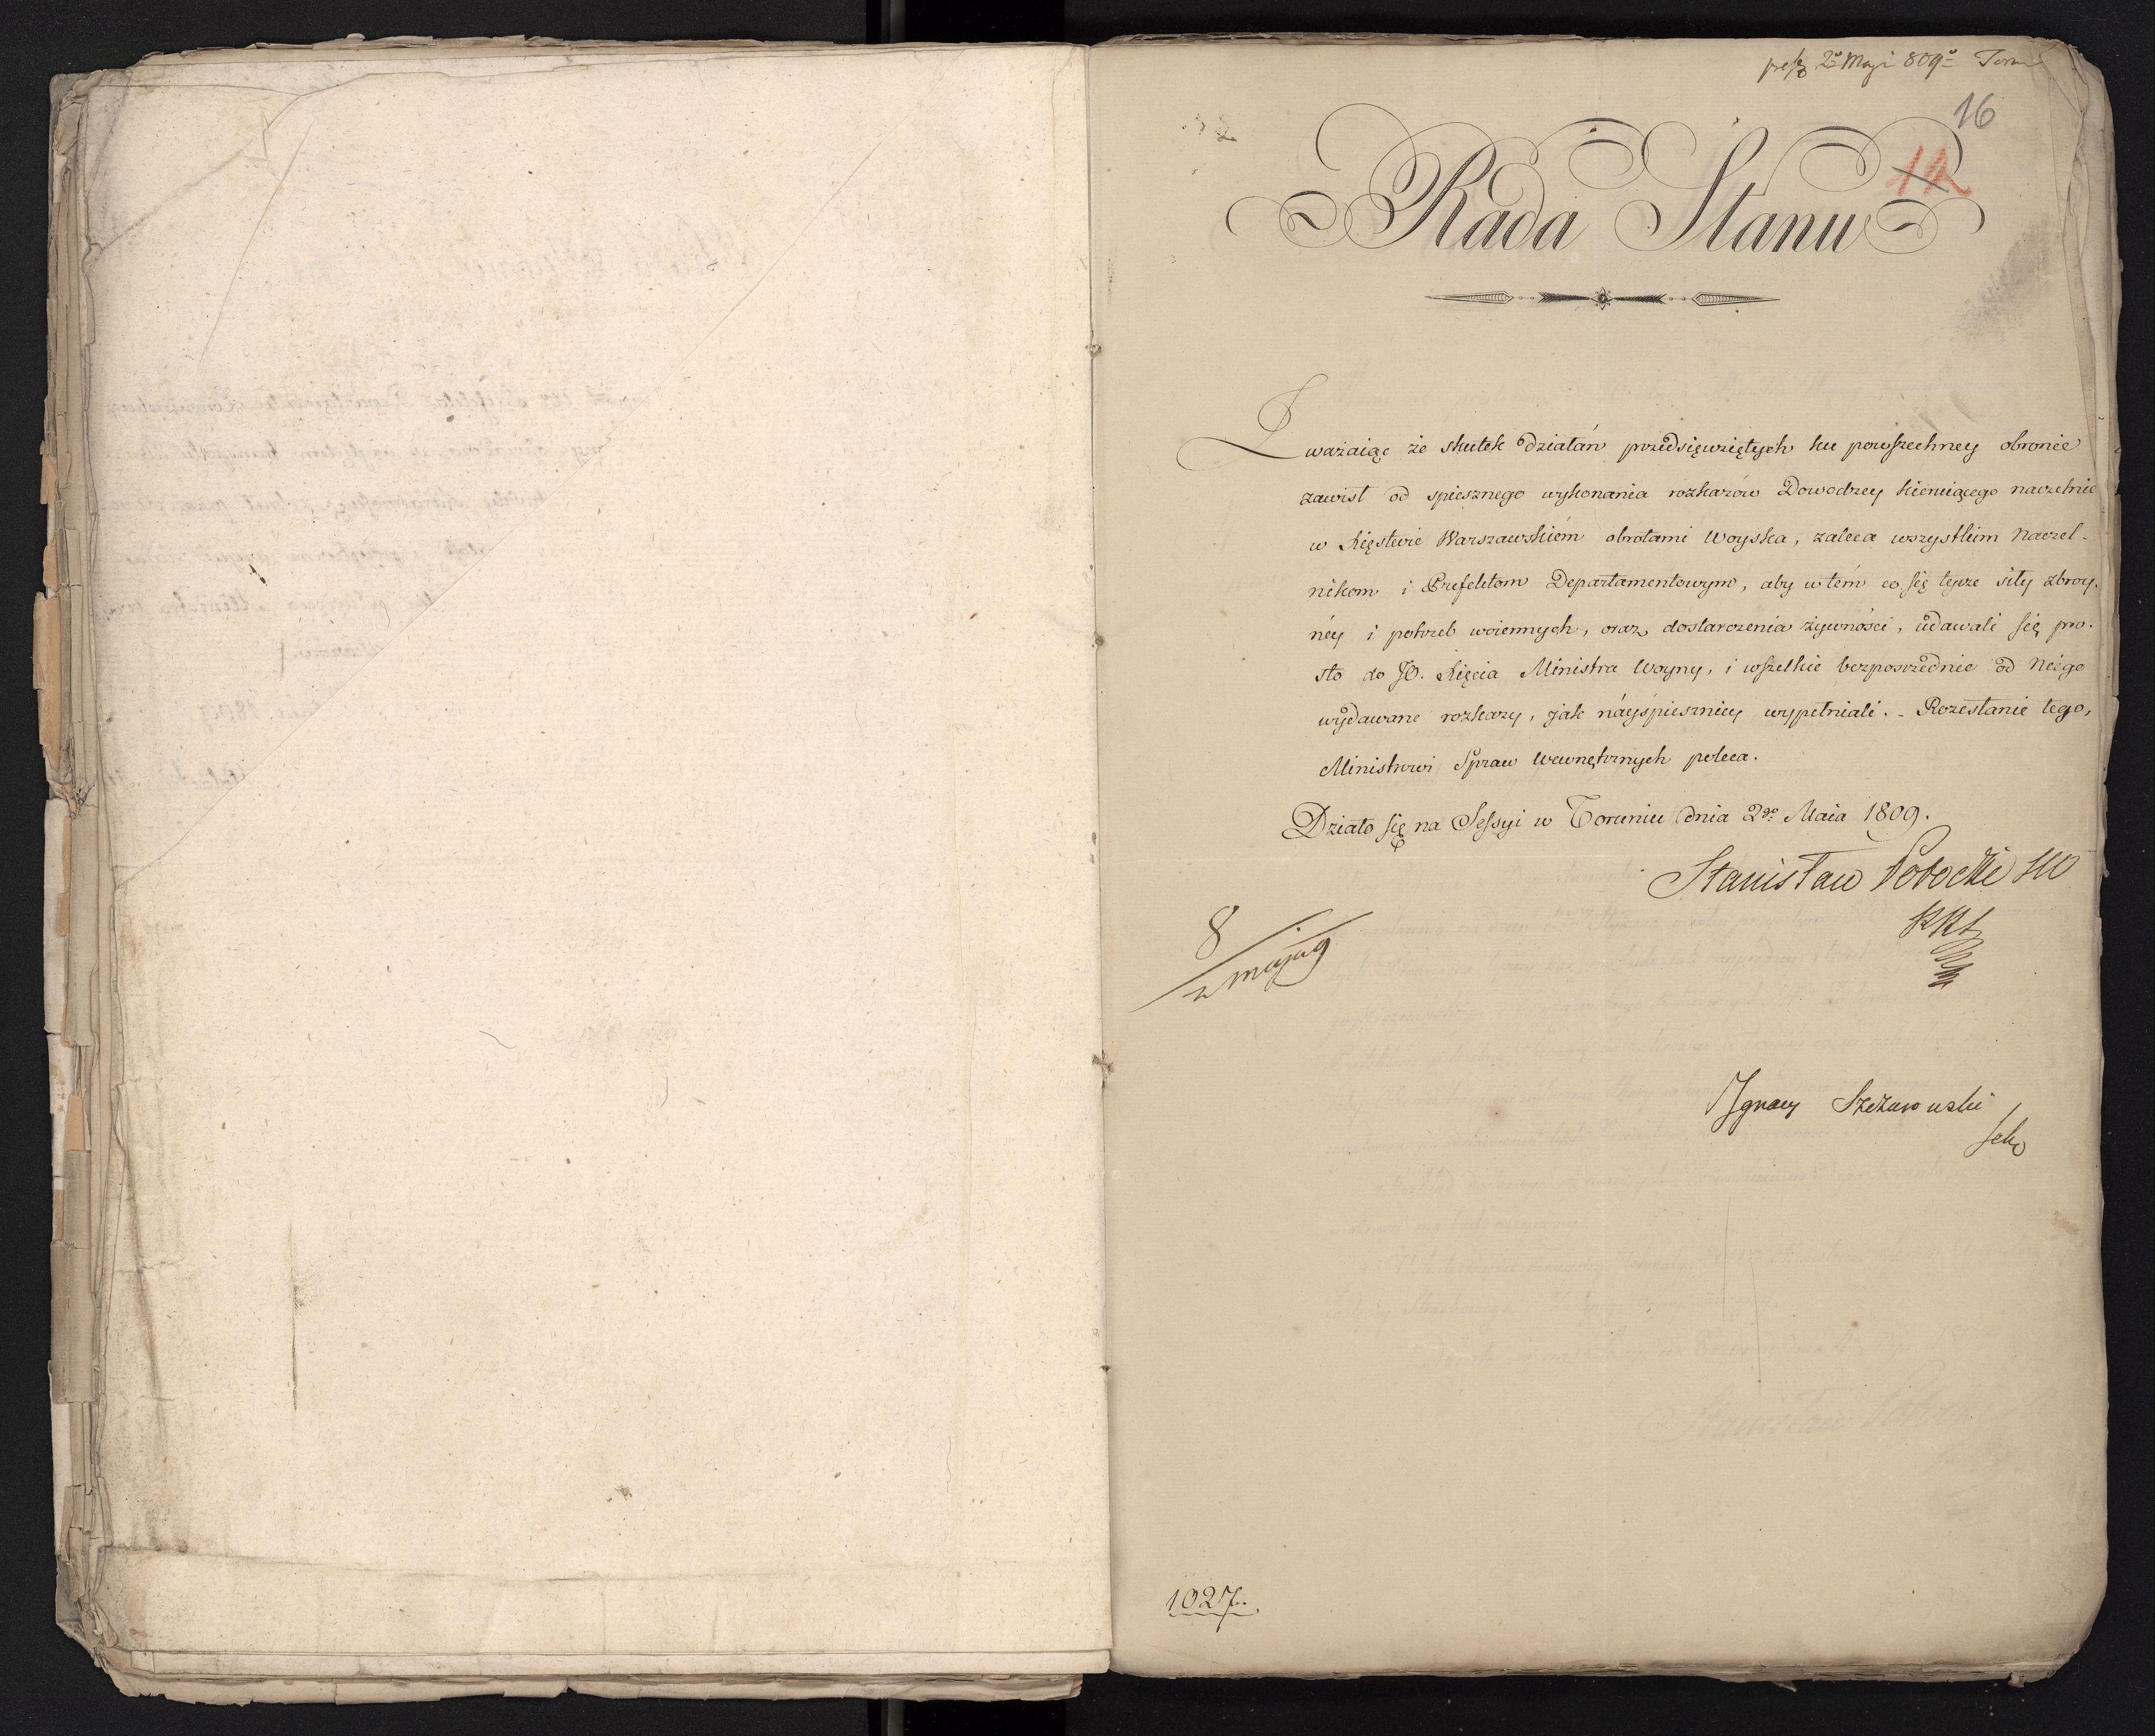 2º Maji 809º
16
12
Rada Stanu
Uważaiąc że skutek działań przedsięwziętych ku powszechney obronie
zawisł od spiesznego wykonania rozkazów Dowodzcy kieruiącego naczelnie
w Xięstwie Warszawskiém obrotami Woyska, zaleca wszystkim Naczel-
nikom i Prefektom Departamentowym, aby w tém co się tycze siły zbroy-
néy i potrzeb woiennych, oraz dostarczenia żywności, udawali się pro-
sto do JO. Xięcia Ministra Woyny, i wszelkie bezpośrzednie od Niego
wydawane rozkazy, jak náyspieszniey wypełniali. - Rozesłanie tego,
Ministrowi Spraw Wewnętrznych poleca.
Działo się na Sessyi w Toruniu dnia 2go Maia 1809.
Stanisław Potocki
8
maja 9
Ignacy
1027.